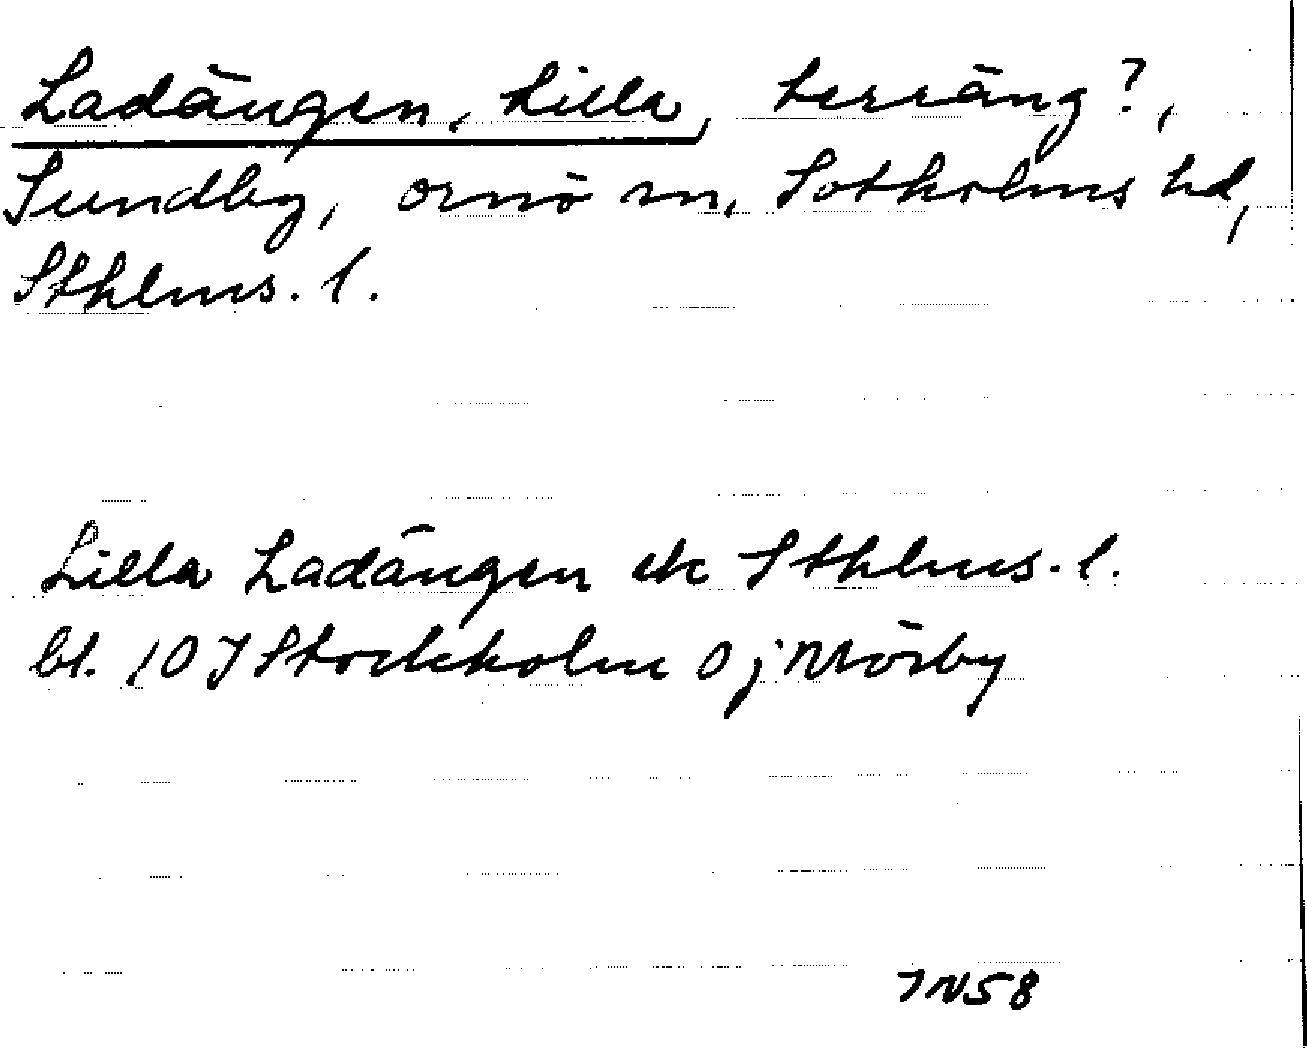 Ladängen, Lilla, terräng?,
Sundby, Ornö sn, Sotholms hd,
Sthlms. l.
Lilla Ladängen ek Sthlms. l.
bl. 10 J Stockholm Oj Mörby
JN58